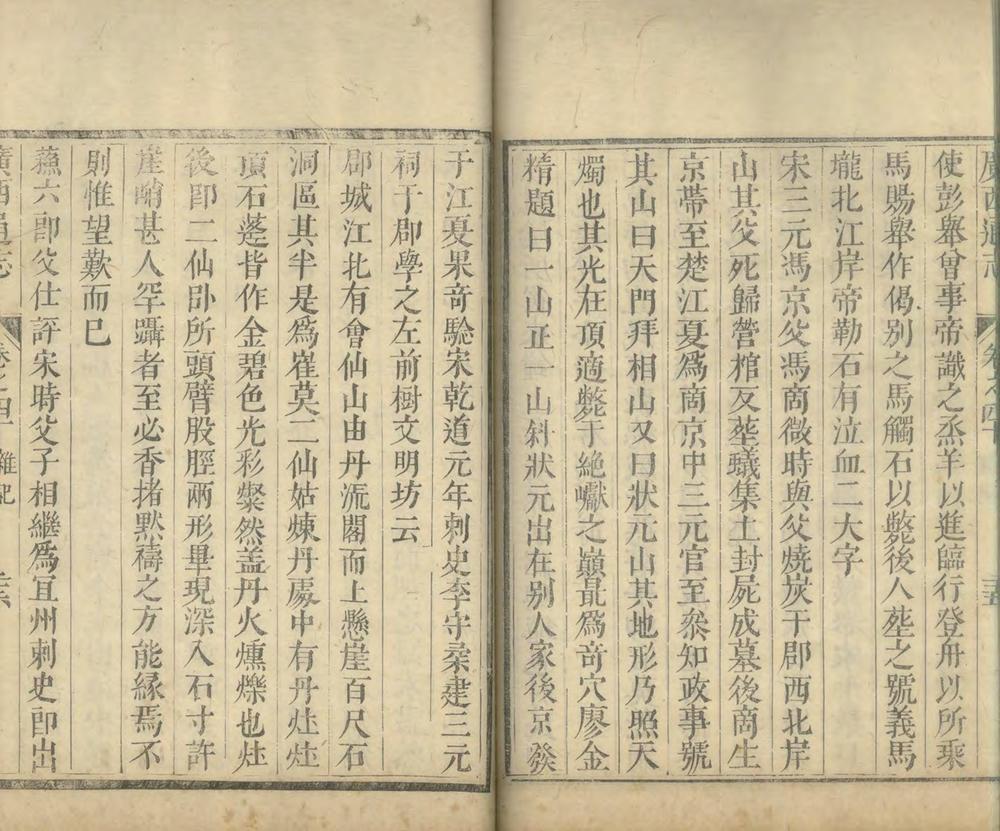 廣西通志　卷之四十　三五
使彭舉曾事帝識之烝羊以進臨行登舟以所乘
馬賜舉作偈别之馬觸石以斃後人塟之號義馬
壠北江岸帝勒石有泣血二大字
宋三元馮京父馮商微時與父燒炭于郡西北岸
山其父死歸營棺反塟蟻集土封屍成墓後商生
京帶至楚江夏爲商京中三元官至叅知政事號
其山曰天門拜相山又曰狀元山其地形乃照天
燭也其光在頂適斃于絶巘之巔最爲竒穴廖金
精題曰一山正一山斜狀元出在别人家後京發
于江夏果竒驗宋乾道元年刺史李守柔建三元
祠于郡學之左前樹文明坊云
郡城江北有會仙山由丹流閣而上懸崖百尺石
洞區其半是爲崔莫二仙姑煉丹處中有丹灶灶
頂石蓬皆作金碧色光彩燦然盖丹火燻爍也灶
後即二仙卧所頭臂股脛兩形畢現深入石寸許
崖峭甚人罕躡者至必香揩默禱之方能緣焉不
則惟望歎而已
蘓六郎父仕評宋時父子相繼爲宜州刺史即出
廣西通志　卷之四十　雜記　三六